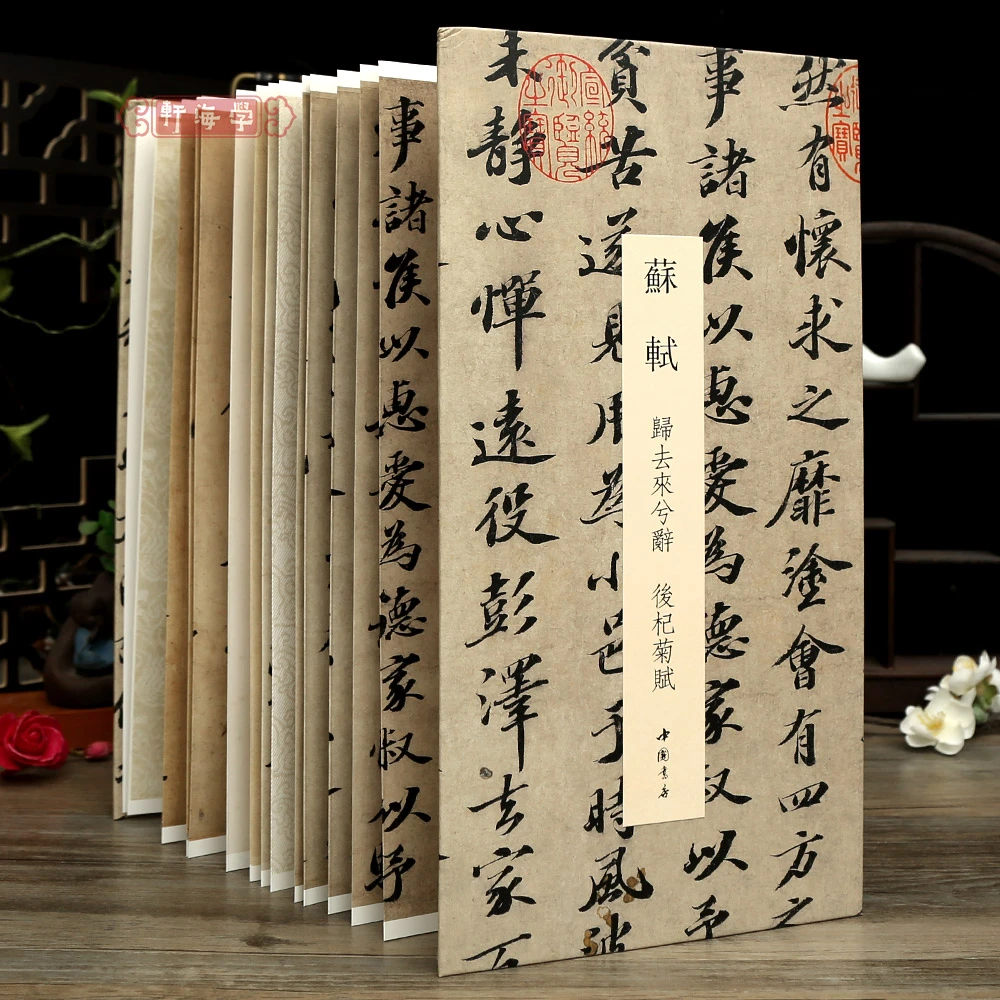 然有懷求之靡塗會有四方之
事諸侯以惠愛為德家叔以予
貧苦遂見用為小邑于時風波
未靜心憚遠役彭澤去家百
宣統御覽之寶
蘇軾
歸去來兮辭 後杞菊賦
中國書店
事諸侯以惠愛為德家叔以予
學海軒